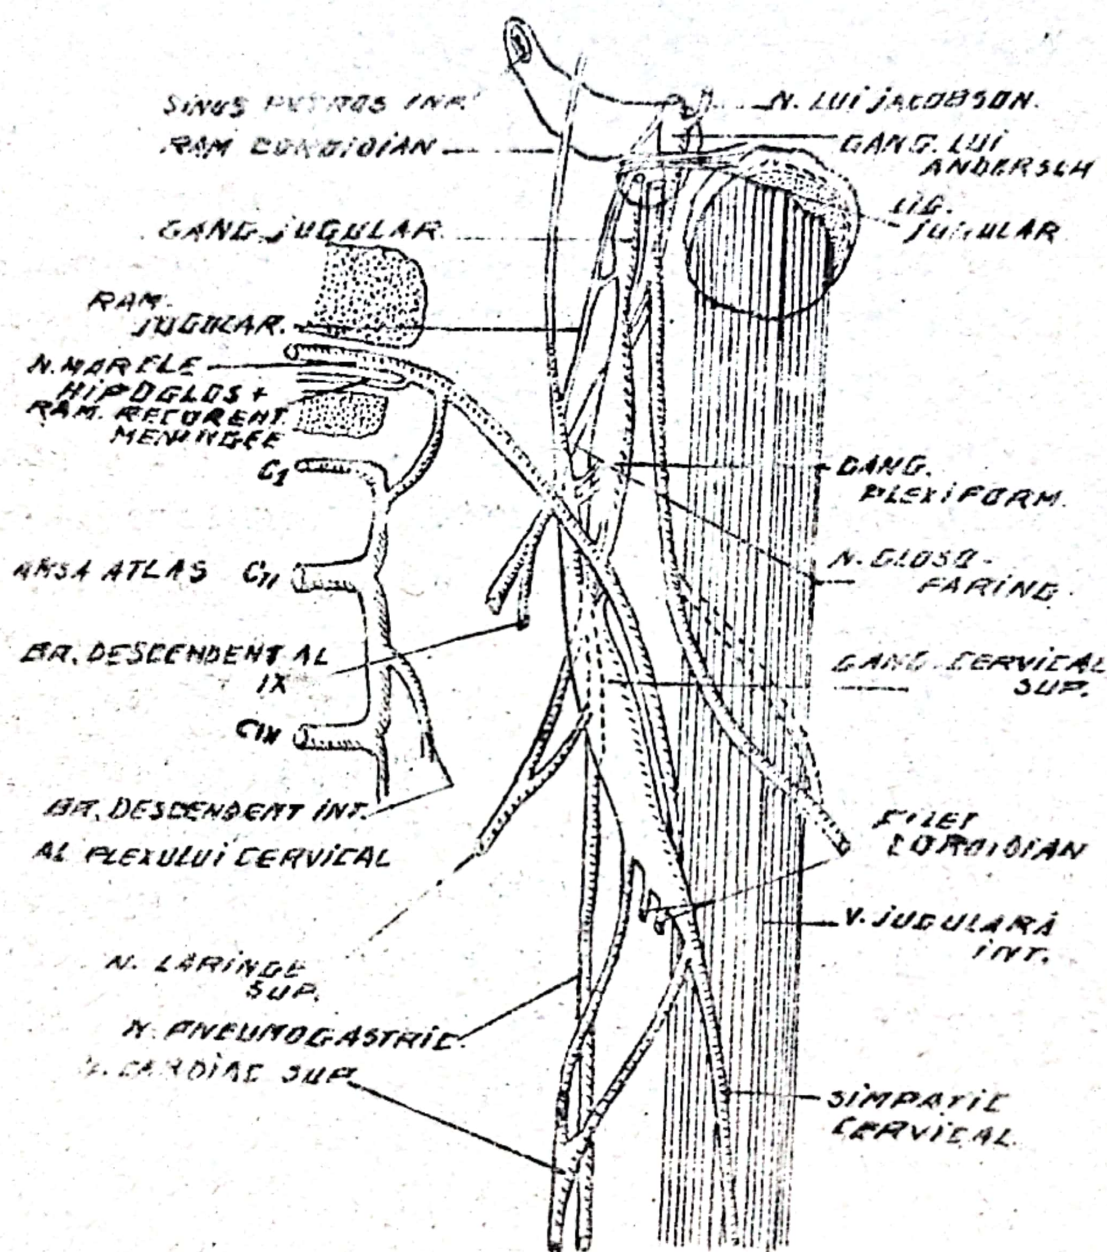 SINUS PETROS INF.
RAM CONDIDIAN
GANG. JUGULAR
RAM.
JUGULAR.
N. MARELE
HIPOGLOS +
RAM. RECURENT.
MENINGEE
CI
ANSA ATLAS CII
BR. DESCENDENT AL
IX
BR. DESCENDENT INT.
AL PLEXULUI CERVICAL
N. LARINGE
SUP.
N. PNEUMOGASTRIC.
CARDIAC SUP
N. LUI JACOBSON.
GANG. LUI
ANDERSCH
LIG.
JUGULAR
GANG.
PLEXIFORM.
N. GLOSO-
FARING.
GANG. CERVICAL
SUP.
FILET
V. JUGULARĂ
INT.
SIMPATIC
CERVICAL